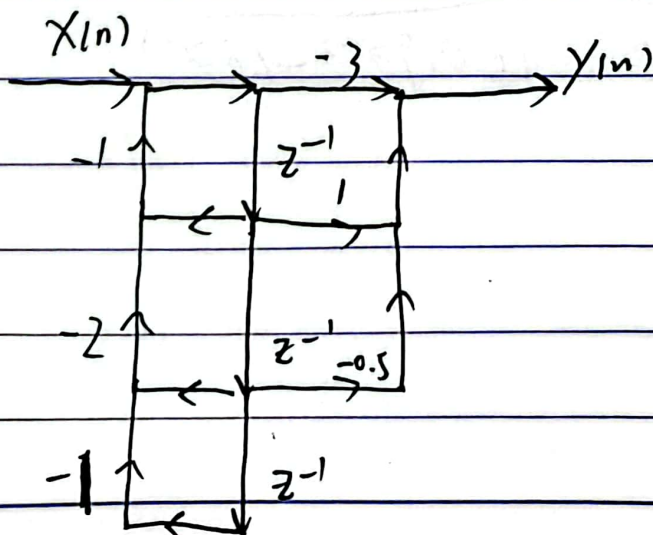 X(n)
-3
Y(n)
-1
z⁻¹
1
-2
z⁻¹
-0.5
-1
z⁻¹